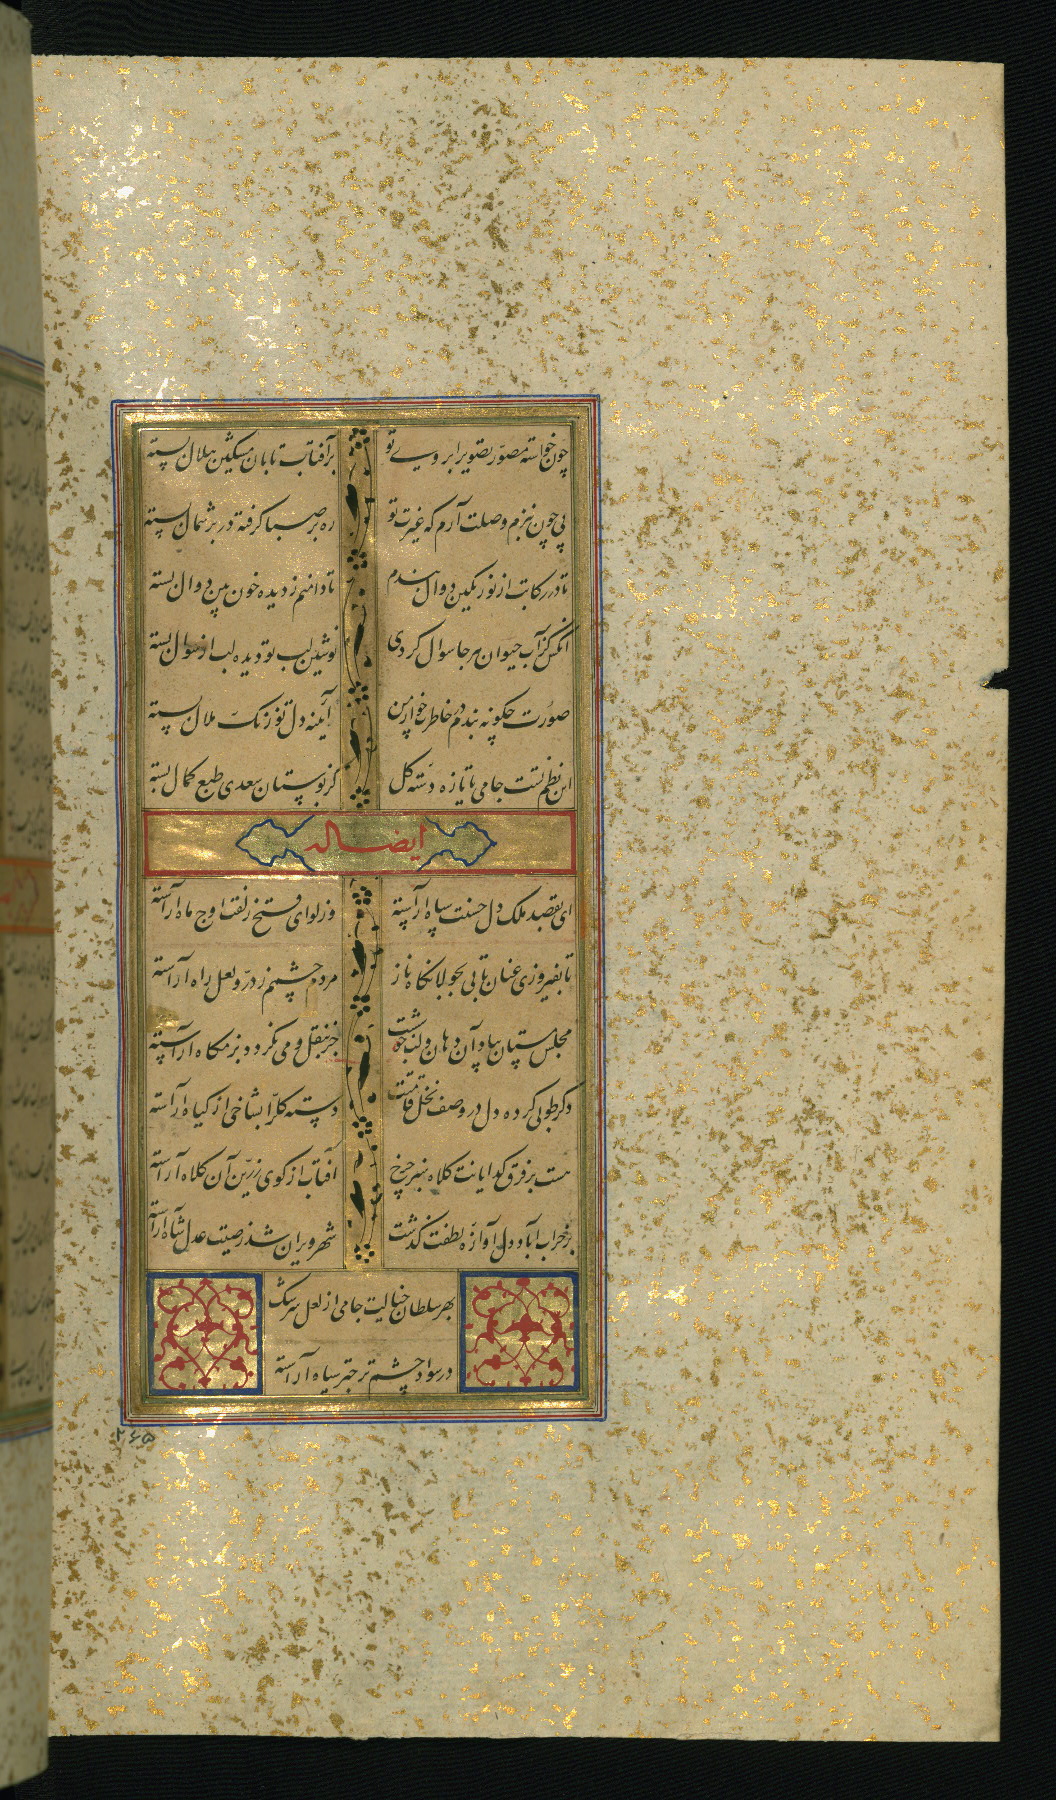 چون خواسته مصور تصویر ابروی تو بر آفتاب تابان مشکین هلال بسته
پی چون ببزم وصلت آرم که غیرت تو ره بر صبا گرفته در بر شمال بسته
تا در رکابت از نو رنگین دوال بندم تا دامنم ز دیده خون بین دوال بسته
آنکس کز آب حیوان هر جا سوال کردی نوشین لب تو دیده لب از سوال بسته
صورت چگونه بندم خاطر خ ازین آیینه دل تو زنگ ملال بسته
این نظم تست جامی یا تازه دسته گل کز بوستان سعدی طبع کمال بسته
ایضا له
ای بقصد ملک دل حسنت سپاه آراسته وز لوای فتح زلفت اوج ماه آراسته
تا بفیروزی عنان تابی بجولانگاه ناز مردم چشمم ز در و لعل راه آراسته
مجلس مستان بیاد آن دهان و لب خوشست جز بنقل و می نگردد بزمگاه آراسته
ذکر طوبی کرده دل در وصف نخل قامتت دسته گل را بشاخی از گیاه آراسته
هست بر فرق گدایانت کلاه سبز چرخ آفتاب از گوی زرین آن کلاه آراسته
بر خراب آباد دل آوازه لطفت گذشت شهر ویران شد ز صیت عدل شاه آراسته
بهر سلطان خیالت جامی از لعل سرشک
در سواد چشم تر چتر سیاه آراسته
۲۶۵